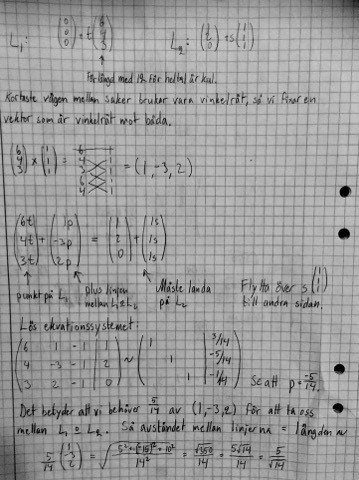 L₁: (0 0 0) + t(6 4 3) L₂: (1 2 0) + s(1 1 1)
Förlängd med 12 för heltal är kul.
Kortaste vägen mellan saker brukar vara vinkelrät, så vi finner en
vektor som är vinkelrät mot båda.
(6 4 3) × (1 1 1) = = (1, -3, 2)
(6t 4t 3t) + (1p -3p 2p) = (1 2 0) + (1s 1s 1s)
punkt på L₁ plus linjen mellan L₁ & L₂ Måste landa på L₂ Flytta över s(1 1 1) till andra sidan.
Lös ekvationssystemet:
(6 1 -1 | 1
4 -3 -1 | 2
3 2 -1 | 0) ~ (1 | 3/14
1 | -5/14
1 | -1/14) Se att p = -5/14.
Det betyder att vi behöver 5/14 av (1,-3,2) för att ta oss
mellan L₁ o L₂. Så avståndet mellan linjerna = längden av
5/14 (1 -3 2) = √(5² + (-15)² + 10² / 14²) = √350/14 = 5√14/14 = 5/√14